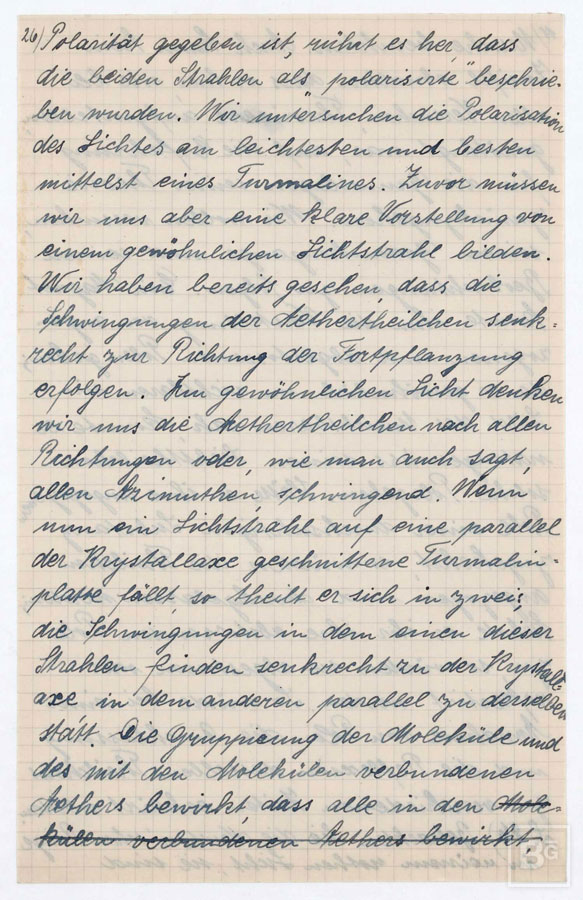 26) Polarität gegeben ist, rührt es her, dass
die beiden Strahlen als „polarisirte" beschrie-
ben wurden. Wir untersuchen die Polarisation
des Lichtes am leichtesten und besten
mittelst eines Turmalines. Zuvor müssen
wir uns aber eine klare Vorstellung von
einem gewöhnlichen Lichtstrahl bilden.
Wir haben bereits gesehen, dass die
Schwingungen der Aethertheilchen senk-
recht zur Richtung der Fortpflanzung
erfolgen. Im gewöhnlichen Licht denken
wir uns die Aethertheilchen nach allen
Richtungen oder, wie man auch sagt,
allen Azimuthen, schwingend. Wenn
nun ein Lichtstrahl auf eine parallel
der Krystallaxe geschnittene Turmalin-
platte fällt, so theilt er sich in zwei;
die Schwingungen in dem einen dieser
Strahlen finden senkrecht zu der Krystall-
axe in dem anderen parallel zu derselben
statt. Die Gruppierung der Moleküle und
des mit den Molekülen verbundenen
Aethers bewirkt, dass alle in den Mole-
külen verbundenen Aethers bewirkt,
BG